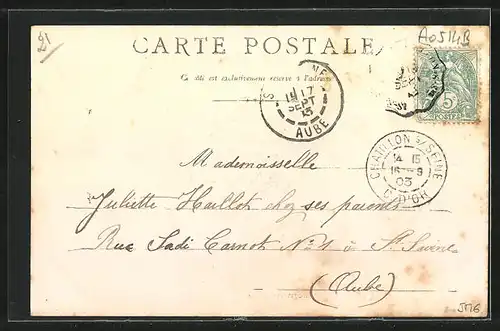 21
A0514B
CARTE POSTALE
Ce côté est exclusivement réservé à l'adresse
17
SEPT
AUBE
5c
POSTES
CHATILLON S/ SEINE
14 15
16 - 9
03
C. D'OR
Mademoisselle
Juliette Haillot chez ses parents
Rue Sadi Carnot No 1 à St Savine
(Aube)